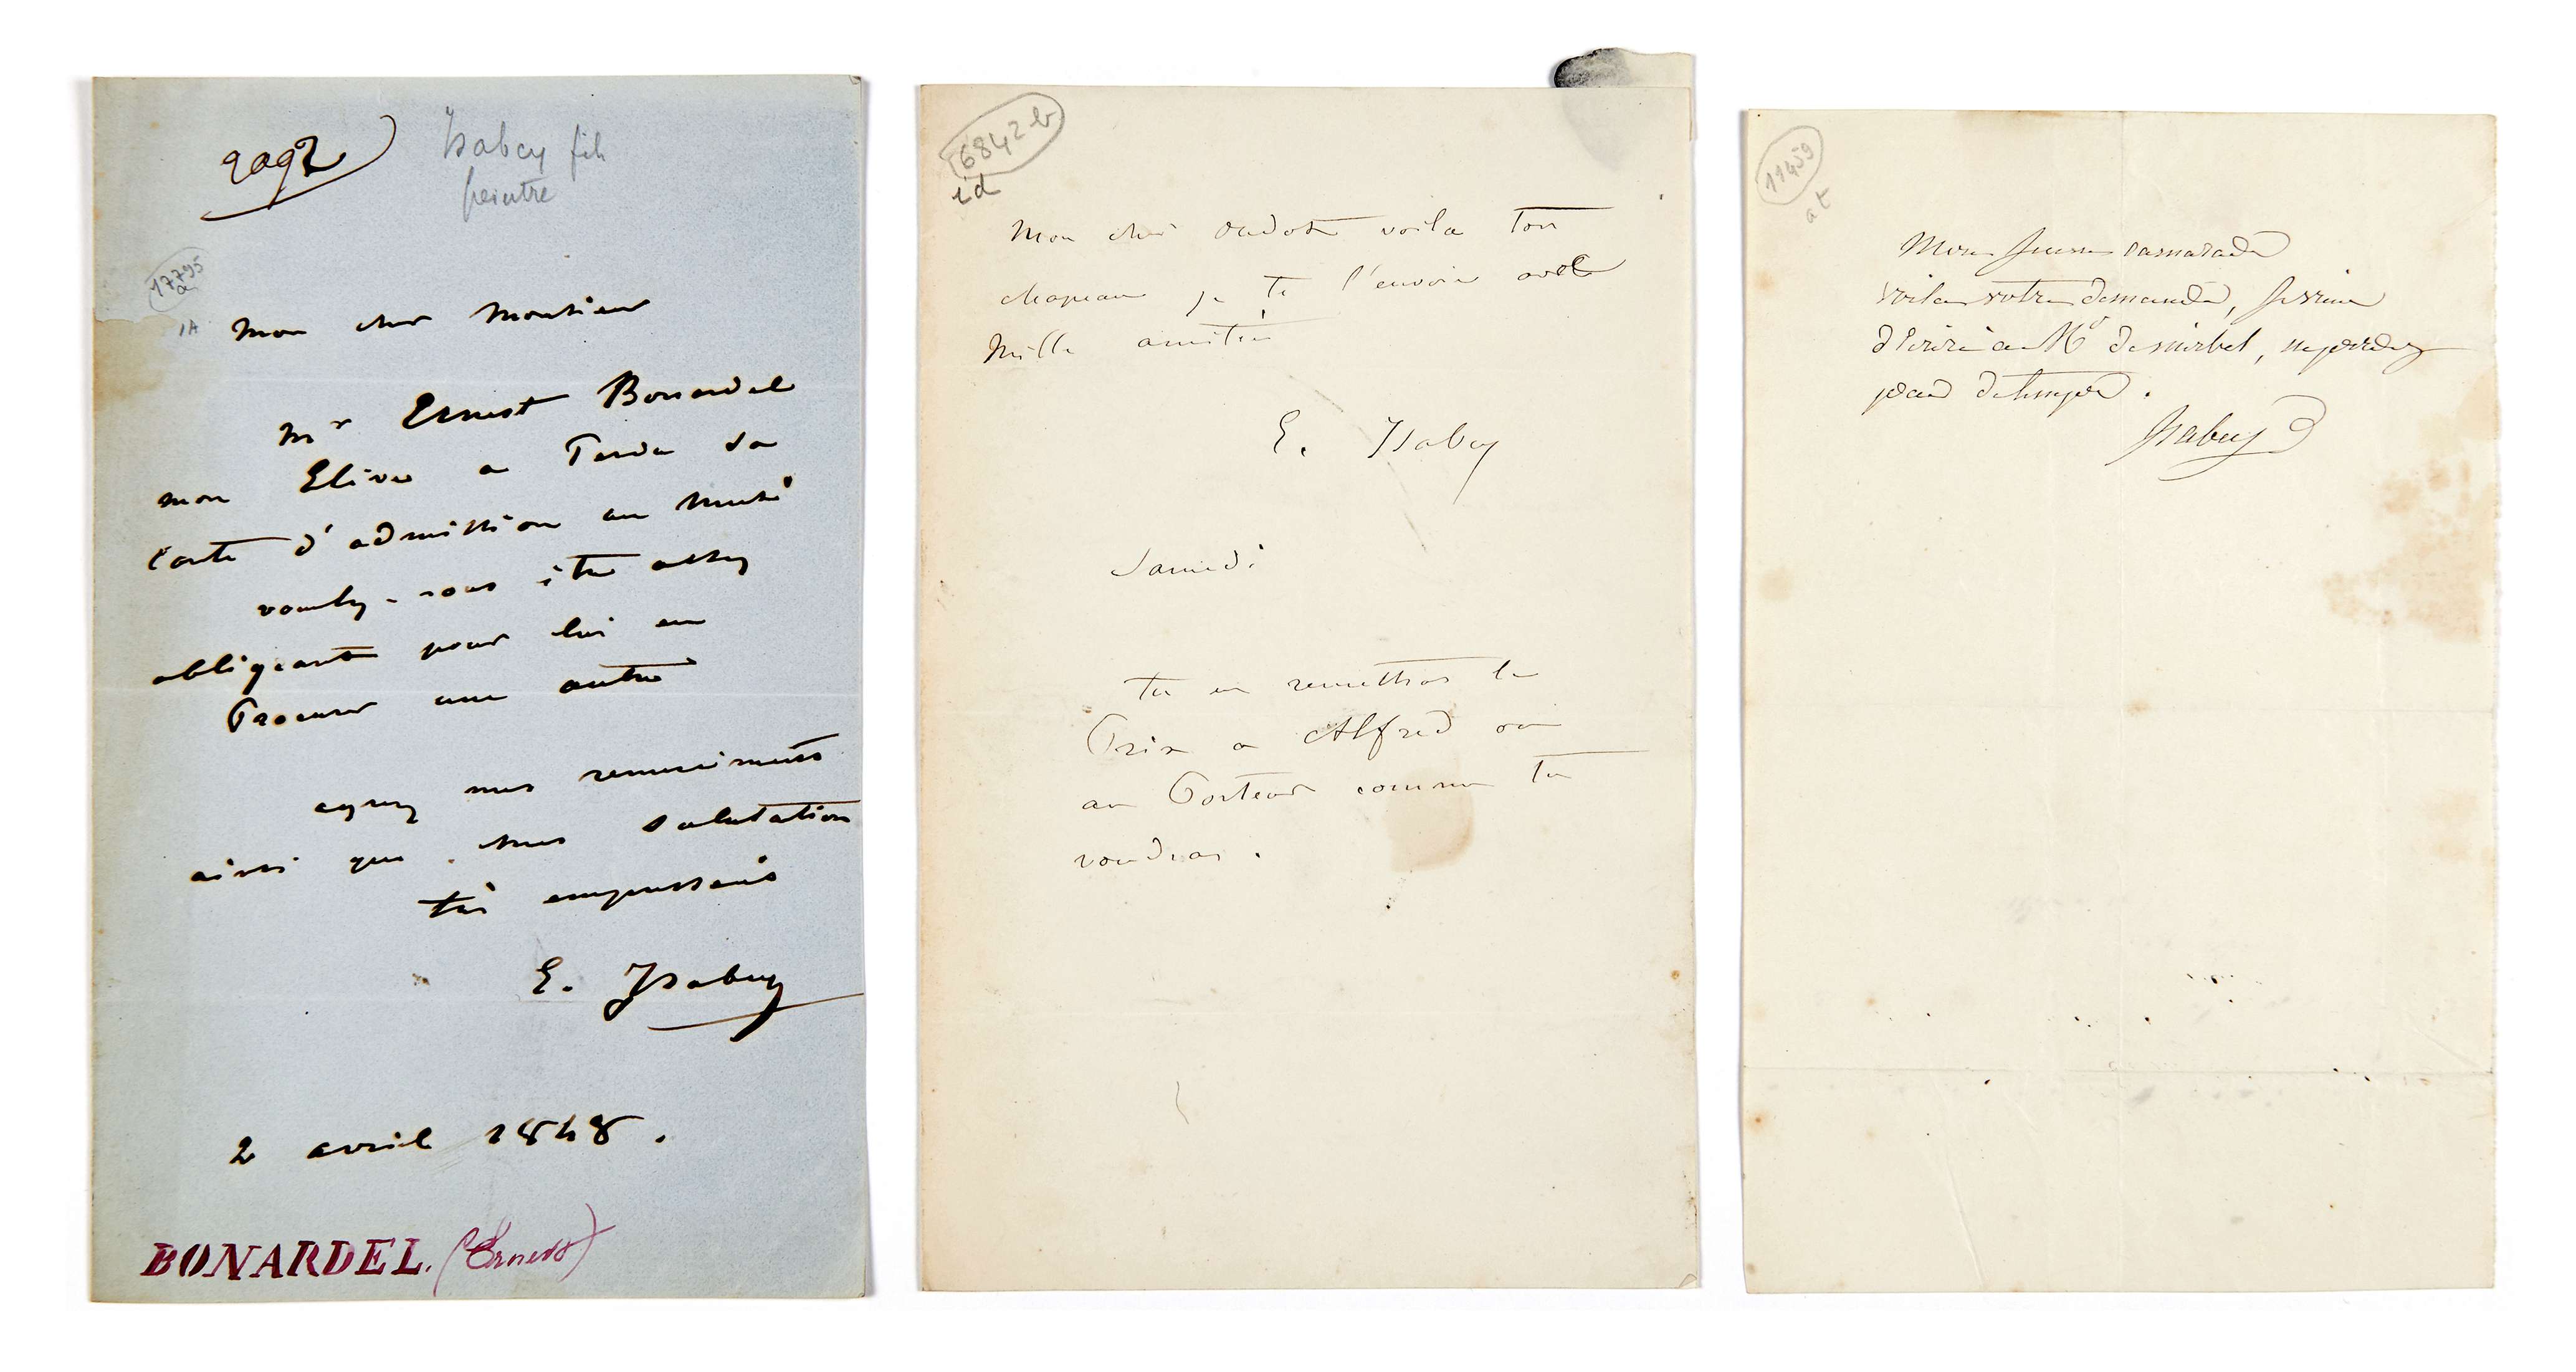 9092
Isabey fils
peintre
17795
a
1A
Mon cher Monsieur
Mr Ernest Bonardel
mon Elève a Perdu sa
Carte d'admission au Musé
voulez-vous être assez
obligeant pour lui en
Procurer une autre
agréez mes remerciments
ainsi que mes salutation
très empressés
E. Isabey
2 avril 1848.
BONARDEL. (Ernest)
6842 b
id
Mon cher oudot voila ton
chapeau je te l'envoie avec
Mille amitié
E. Isabey
Samedi
tu en remettras le
Prix a Alfred ou
au Porteur comme tu
voudras.
11459
at
Mon jeune camarade
voila votre demande, je viens
d'écrire a Mr de mirbel, ne perdez
pas de temps.
Isabey